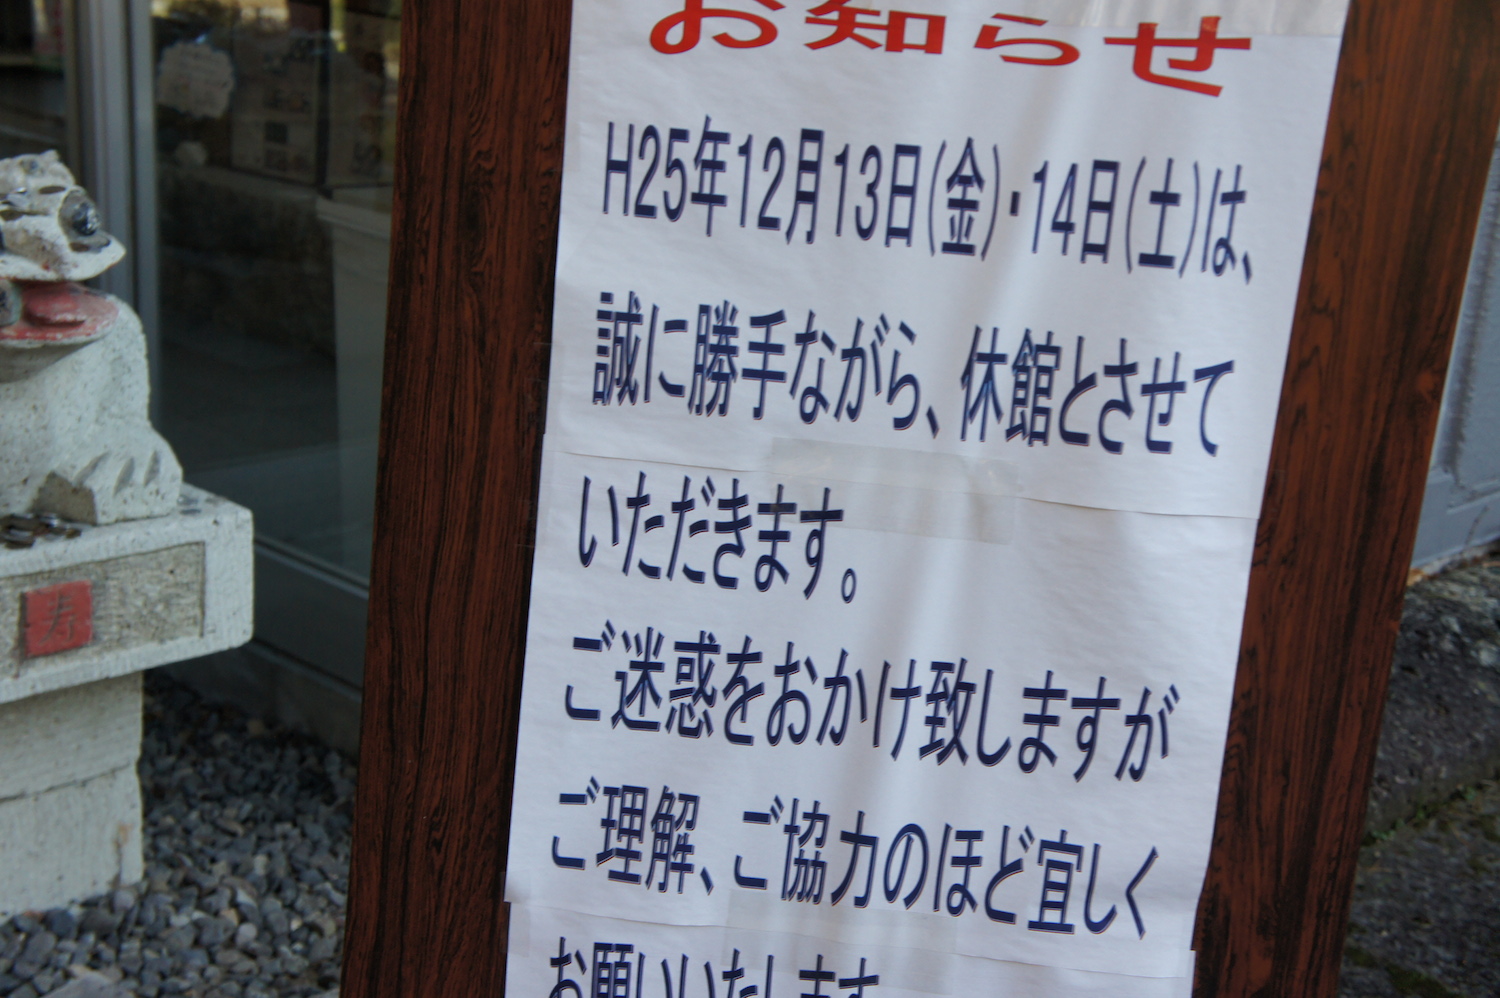 お知らせ
H25年12月13日(金)・14日(土)は、
誠に勝手ながら、休館とさせて
いただきます。
ご迷惑をおかけ致しますが
ご理解、ご協力のほど宜しく
お願いいたします
寿